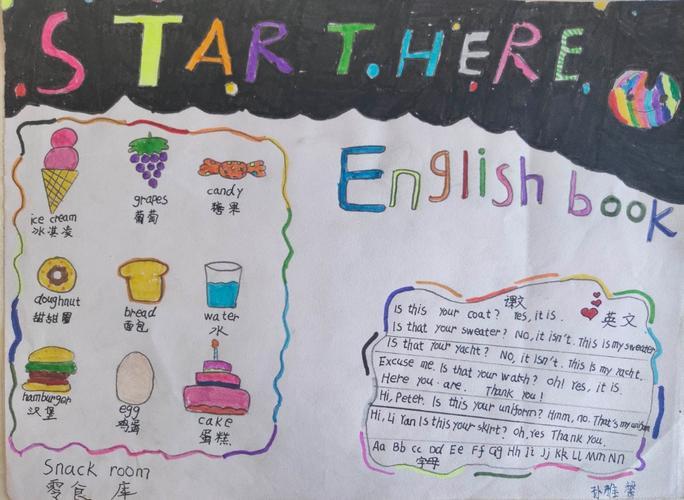 START.HERE
English book
ice cream
冰淇凌
grapes
葡萄
candy
糖果
doughnut
甜甜圈
bread
面包
water
水
hamburger
汉堡
egg
鸡蛋
cake
蛋糕
Snack room
零食 库
课文
英文
Is this your coat? Yes, it is.
Is that your sweater? No, it isn't. This is my sweater
Is that your yacht? No, it isn't. This is my yacht.
Excuse me. Is that your watch? oh! Yes, it is.
Here you are. Thank you!
Hi, Peter. Is this your uniform? Hmm, no. That's my uniform
Hi, Li Yan Is this your skirt? oh, Yes Thank You.
Aa Bb cc Dd Ee Ff Gg Hh Ii Jj Kk Ll Mm Nn
字母